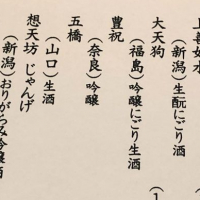 上善如水
（新潟）生酛にごり酒
大天狗
（福島）吟醸にごり生酒
豊祝
（奈良）吟醸
五橋
（山口）生酒
想天坊 じゃんげ
（新潟）おりがらみ吟醸酒